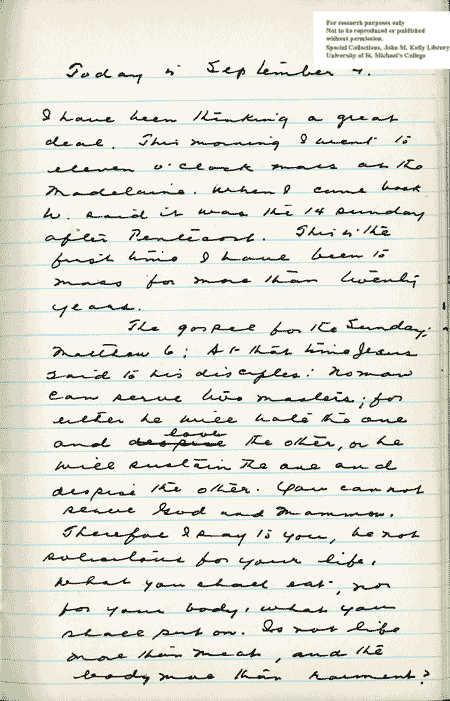 For research purposes only
Not to be reproduced or published
without permission.
Special Collections, John M. Kelly Library
University of St. Michael's College
Today is September 4.
I have been thinking a great
deal. This morning I went to
eleven o'clock mass at the
Madelaine. When I came back
W. said it was the 14 Sunday
after Pentecost. This is the
first time I have been to
mass for more than twenty
years.
The gospel for the Sunday,
Matthew 6: At that time Jesus
said to his disciples: No man
can serve two masters; for
either he will hate the one
and despise love the other, or he
will sustain the one and
despise the other. You can not
serve God and Mammon.
Therefore I say to you, be not
solicitous for your life,
what you shall eat, nor
for your body, what you
shall put on. Is not life
more than meat, and the
body more than raiment?